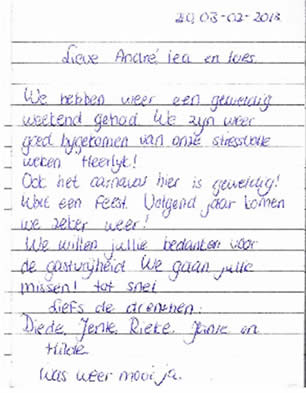 zo, 03-02-2013
Lieve André, Lea en Loes.
We hebben weer een geweldig
weekend gehad. We zyn weer
goed bygekomen van onze stressvolle
weken. Heerlyk!
Ook het carnaval hier is geweldig!
Wat een feest. Volgend jaar komen
we zeker weer!
We willen jullie bedanken voor
de gastvryheid. We gaan jullie
missen! tot snel
Liefs de drenthen:
Diede, Jente, Rieke, Janie en
Hilde.
Was weer mooi ja.